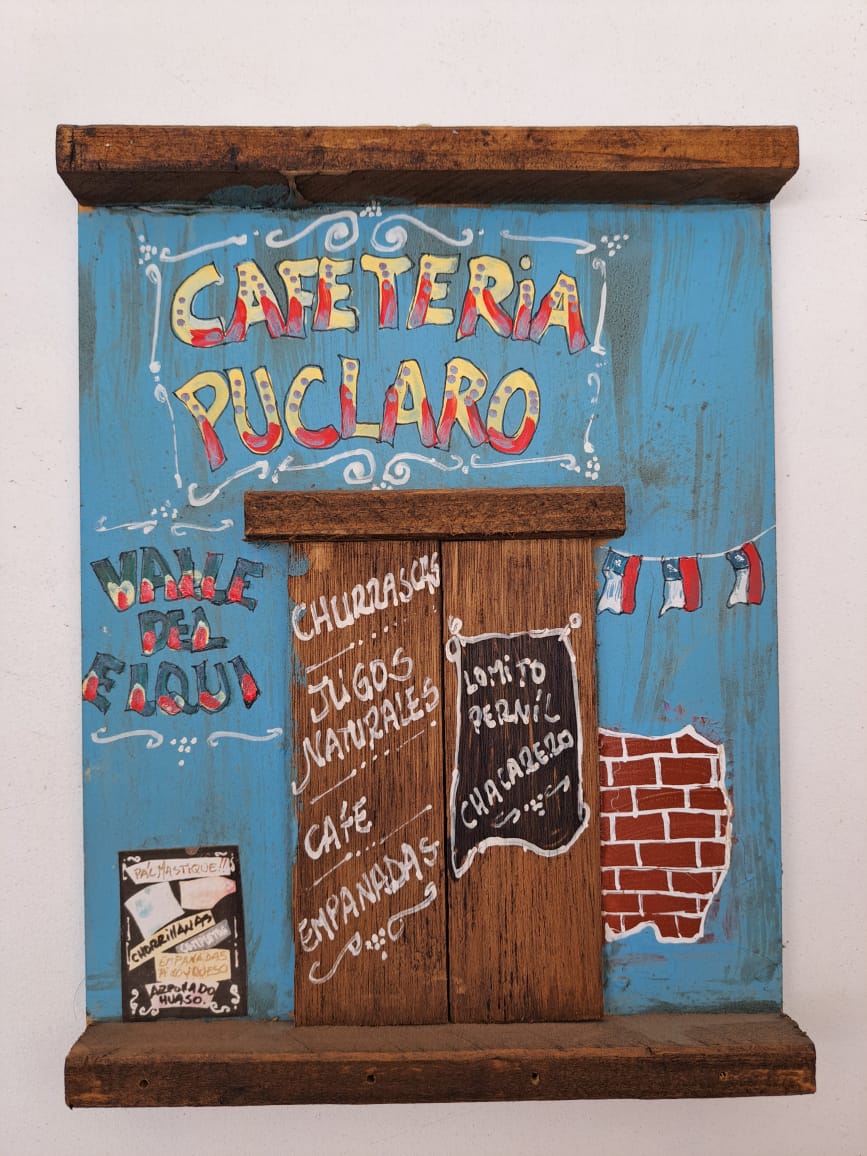 CAFETERIA
PUCLARO
VALLE
DEL
ELQUI
CHURRASCAS
JUGOS
NATURALES
CAFE
EMPANADAS
LOMITO
PERNIL
CHACARERO
PA'L MASTIQUE!!
CHORRILLANAS
COMPLETOS
EMPANADAS
HUASO.